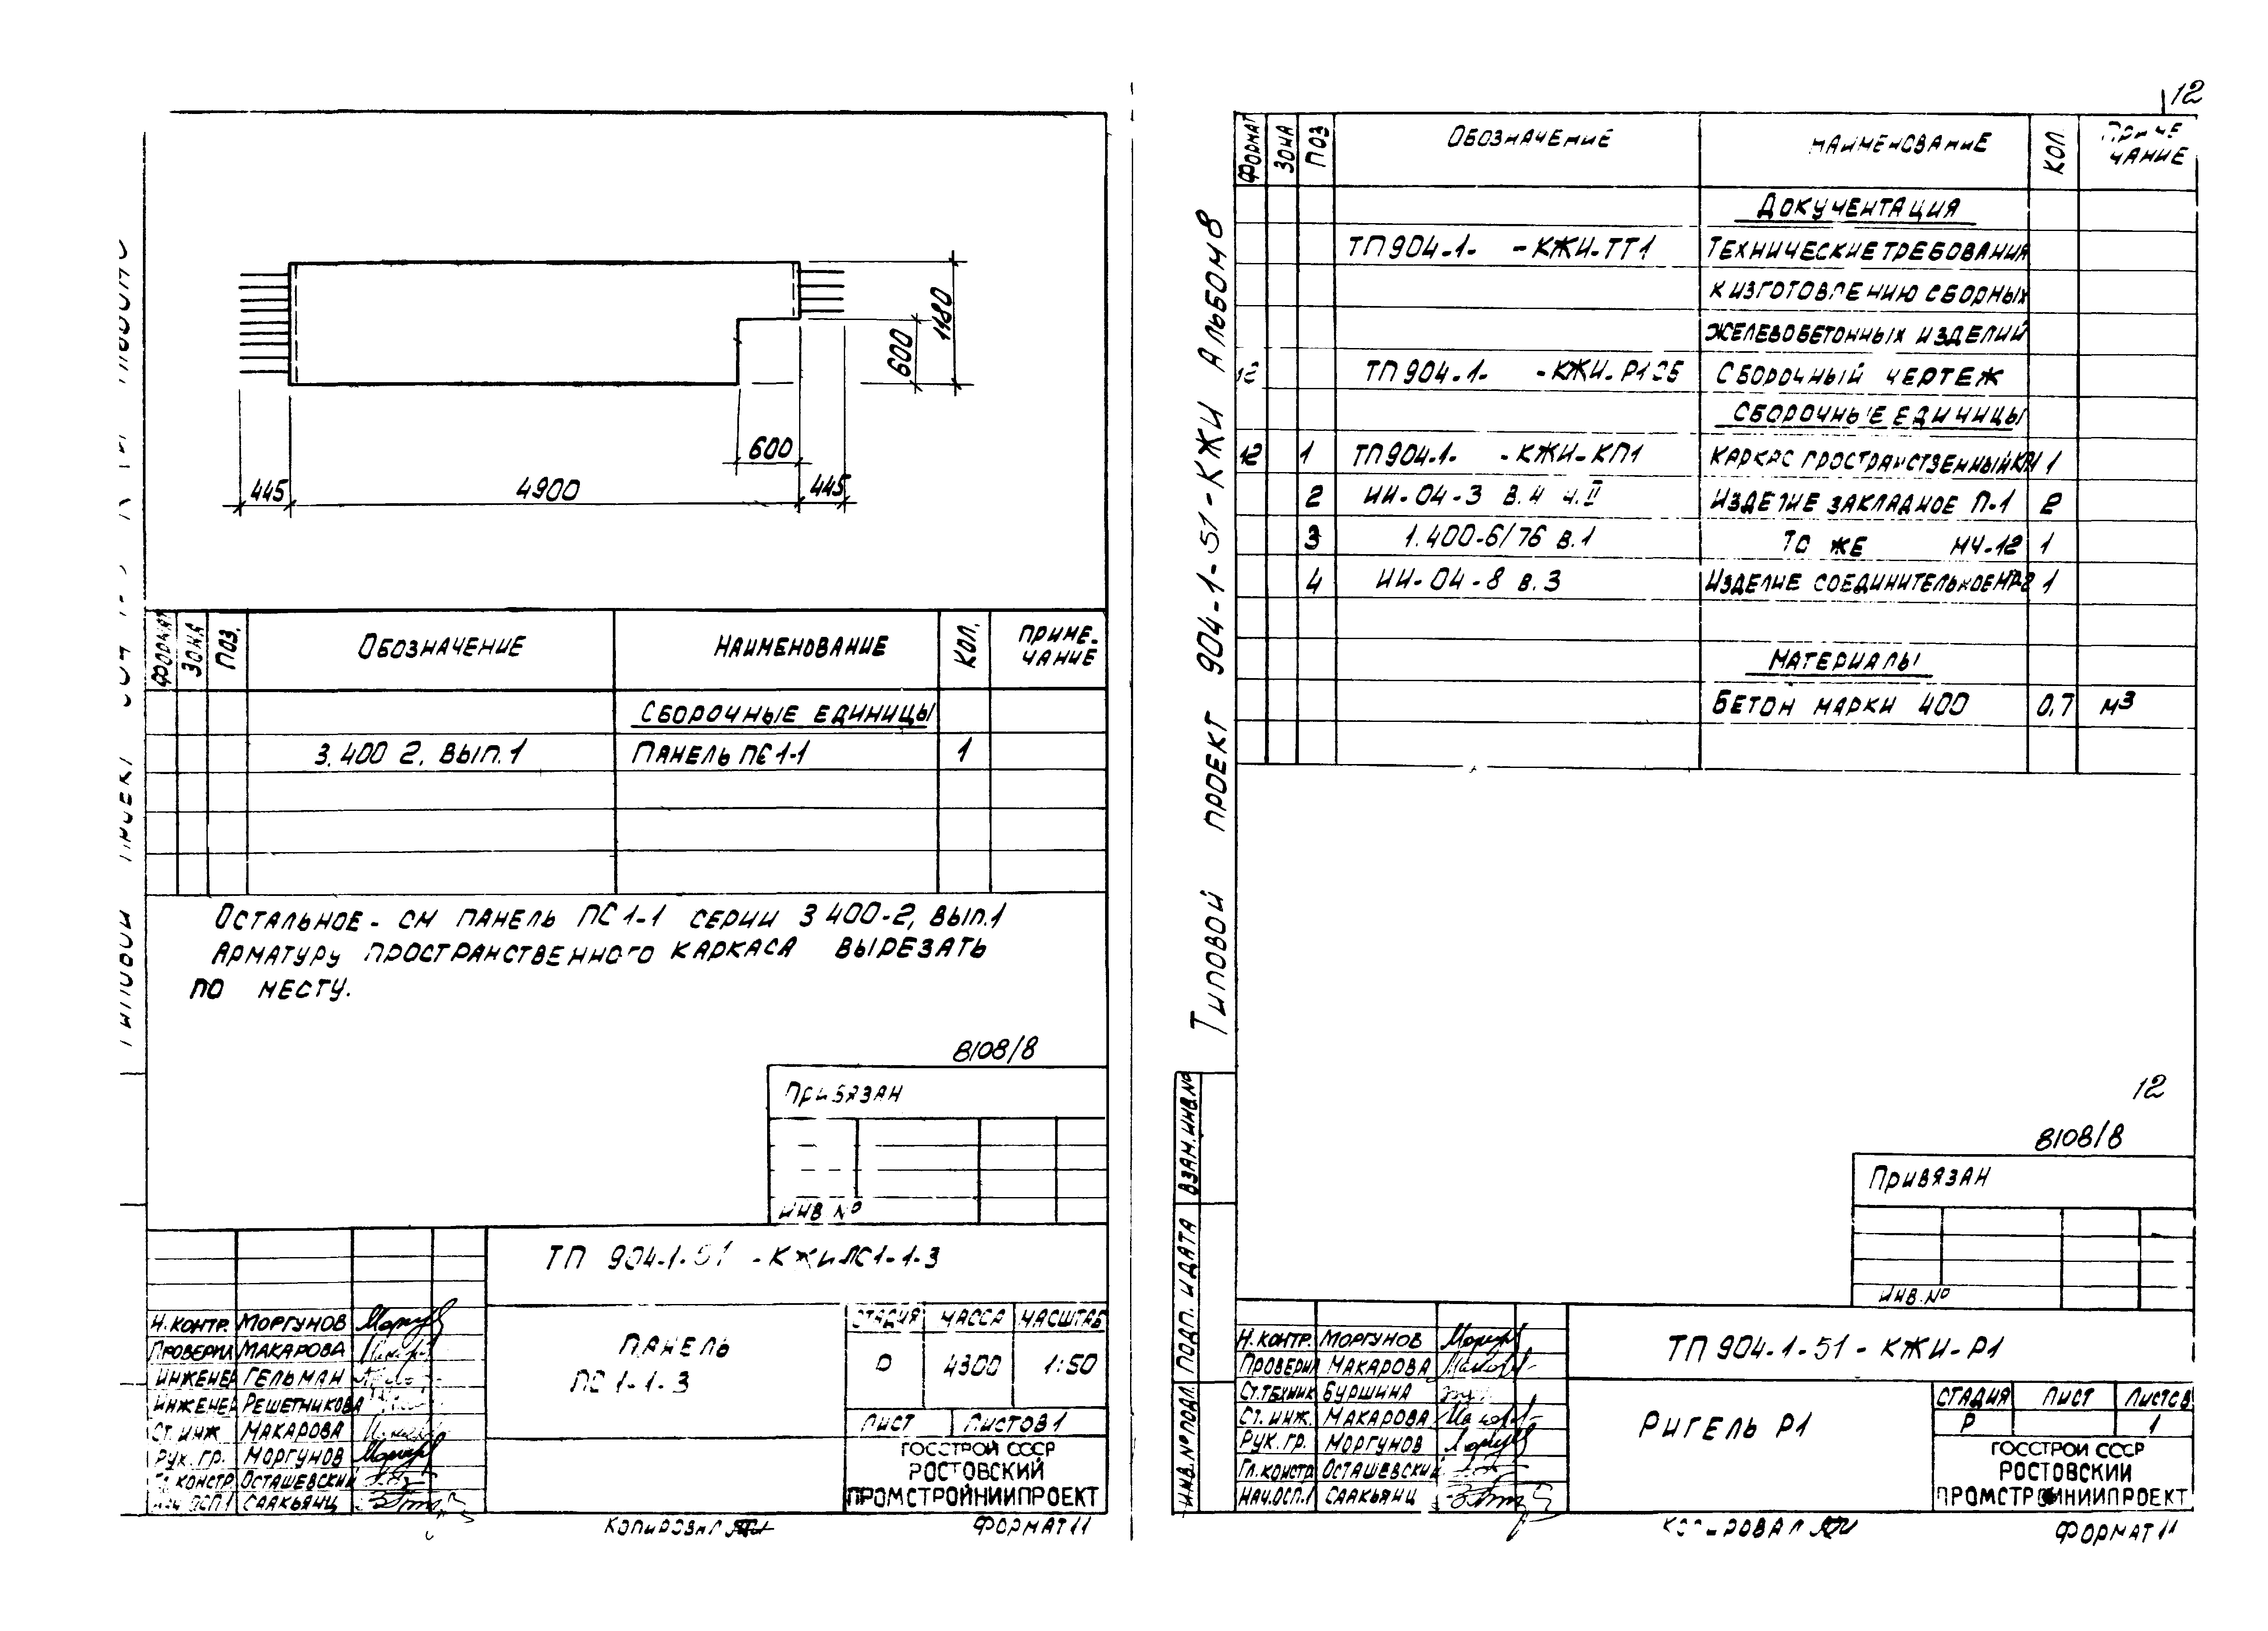 1180
600
600
445
4900
445
ФОРМАТ ЗОНА ПОЗ. ОБОЗНАЧЕНИЕ НАИМЕНОВАНИЕ КОЛ. ПРИМЕ-
ЧАНИЕ
СБОРОЧНЫЕ ЕДИНИЦЫ
3.400 2, ВЫП.1 ПАНЕЛЬ ПС1-1 1
ОСТАЛЬНОЕ - СМ ПАНЕЛЬ ПС1-1 СЕРИИ 3 400-2, ВЫП.1
АРМАТУРУ ПРОСТРАНСТВЕННОГО КАРКАСА ВЫРЕЗАТЬ
ПО МЕСТУ.
8108/8
ПРИВЯЗАН
ИНВ №
ТП 904-1-51 -КЖИ-ПС1-1-3
Н.КОНТР. МОРГУНОВ
ПРОВЕРИЛ МАКАРОВА
ИНЖЕНЕР ГЕЛЬМАН
ИНЖЕНЕР РЕШЕТНИКОВА
СТ.ИНЖ МАКАРОВА
РУК. ГР. МОРГУНОВ
ГЛ. КОНСТР ОСТАШЕВСКИЙ
НАЧ.ОСП.1 СААКЬЯНЦ
ПАНЕЛЬ
ПС1-1-3
СТАДИЯ МАССА МАСШТАБ
Р 4300 1:50
ЛИСТ ЛИСТОВ 1
ГОССТРОЙ СССР
РОСТОВСКИЙ
ПРОМСТРОЙНИИПРОЕКТ
КОПИРОВАЛ ФОРМАТ 11
12
ТИПОВОЙ ПРОЕКТ 904-1-51-КЖИ АЛЬБОМ 8
ФОРМАТ ЗОНА ПОЗ ОБОЗНАЧЕНИЕ НАИМЕНОВАНИЕ КОЛ. ПРИМЕ
ЧАНИЕ
ДОКУМЕНТАЦИЯ
ТП904-1- -КЖИ-ТТ1 ТЕХНИЧЕСКИЕ ТРЕБОВАНИЯ
К ИЗГОТОВЛЕНИЮ СБОРНЫХ
ЖЕЛЕЗОБЕТОННЫХ ИЗДЕЛИЙ
12 ТП904-1- -КЖИ-Р1СБ СБОРОЧНЫЙ ЧЕРТЕЖ
СБОРОЧНЫЕ ЕДИНИЦЫ
12 1 ТП904-1- -КЖИ-КП1 КАРКАС ПРОСТРАНСТВЕННЫЙ КП1 1
2 ИИ-04-3 В.4 Ч.II ИЗДЕЛИЕ ЗАКЛАДНОЕ П-1 2
3 1.400-6/76 В.1 ТО ЖЕ МЧ-12 1
4 ИИ-04-8 В.3 ИЗДЕЛИЕ СОЕДИНИТЕЛЬНОЕ МР-2 1
МАТЕРИАЛЫ
БЕТОН МАРКИ 400 0.7 М3
12
8108/8
ПРИВЯЗАН
ИНВ.№
ВЗАМ.ИНВ.№
ПОДП. И ДАТА
ИНВ.№ ПОДЛ.
ТП904-1-51-КЖИ-Р1
Н.КОНТР. МОРГУНОВ
ПРОВЕРИЛ МАКАРОВА
СТ.ТЕХНИК БУРШИНА
СТ. ИНЖ. МАКАРОВА
РУК. ГР. МОРГУНОВ
ГЛ.КОНСТР ОСТАШЕВСКИЙ
НАЧ.ОСП.1 СААКЬЯНЦ
РИГЕЛЬ Р1
СТАДИЯ ЛИСТ ЛИСТОВ
Р 1
ГОССТРОЙ СССР
РОСТОВСКИЙ
ПРОМСТРОЙНИИПРОЕКТ
КОПИРОВАЛ ФОРМАТ 11